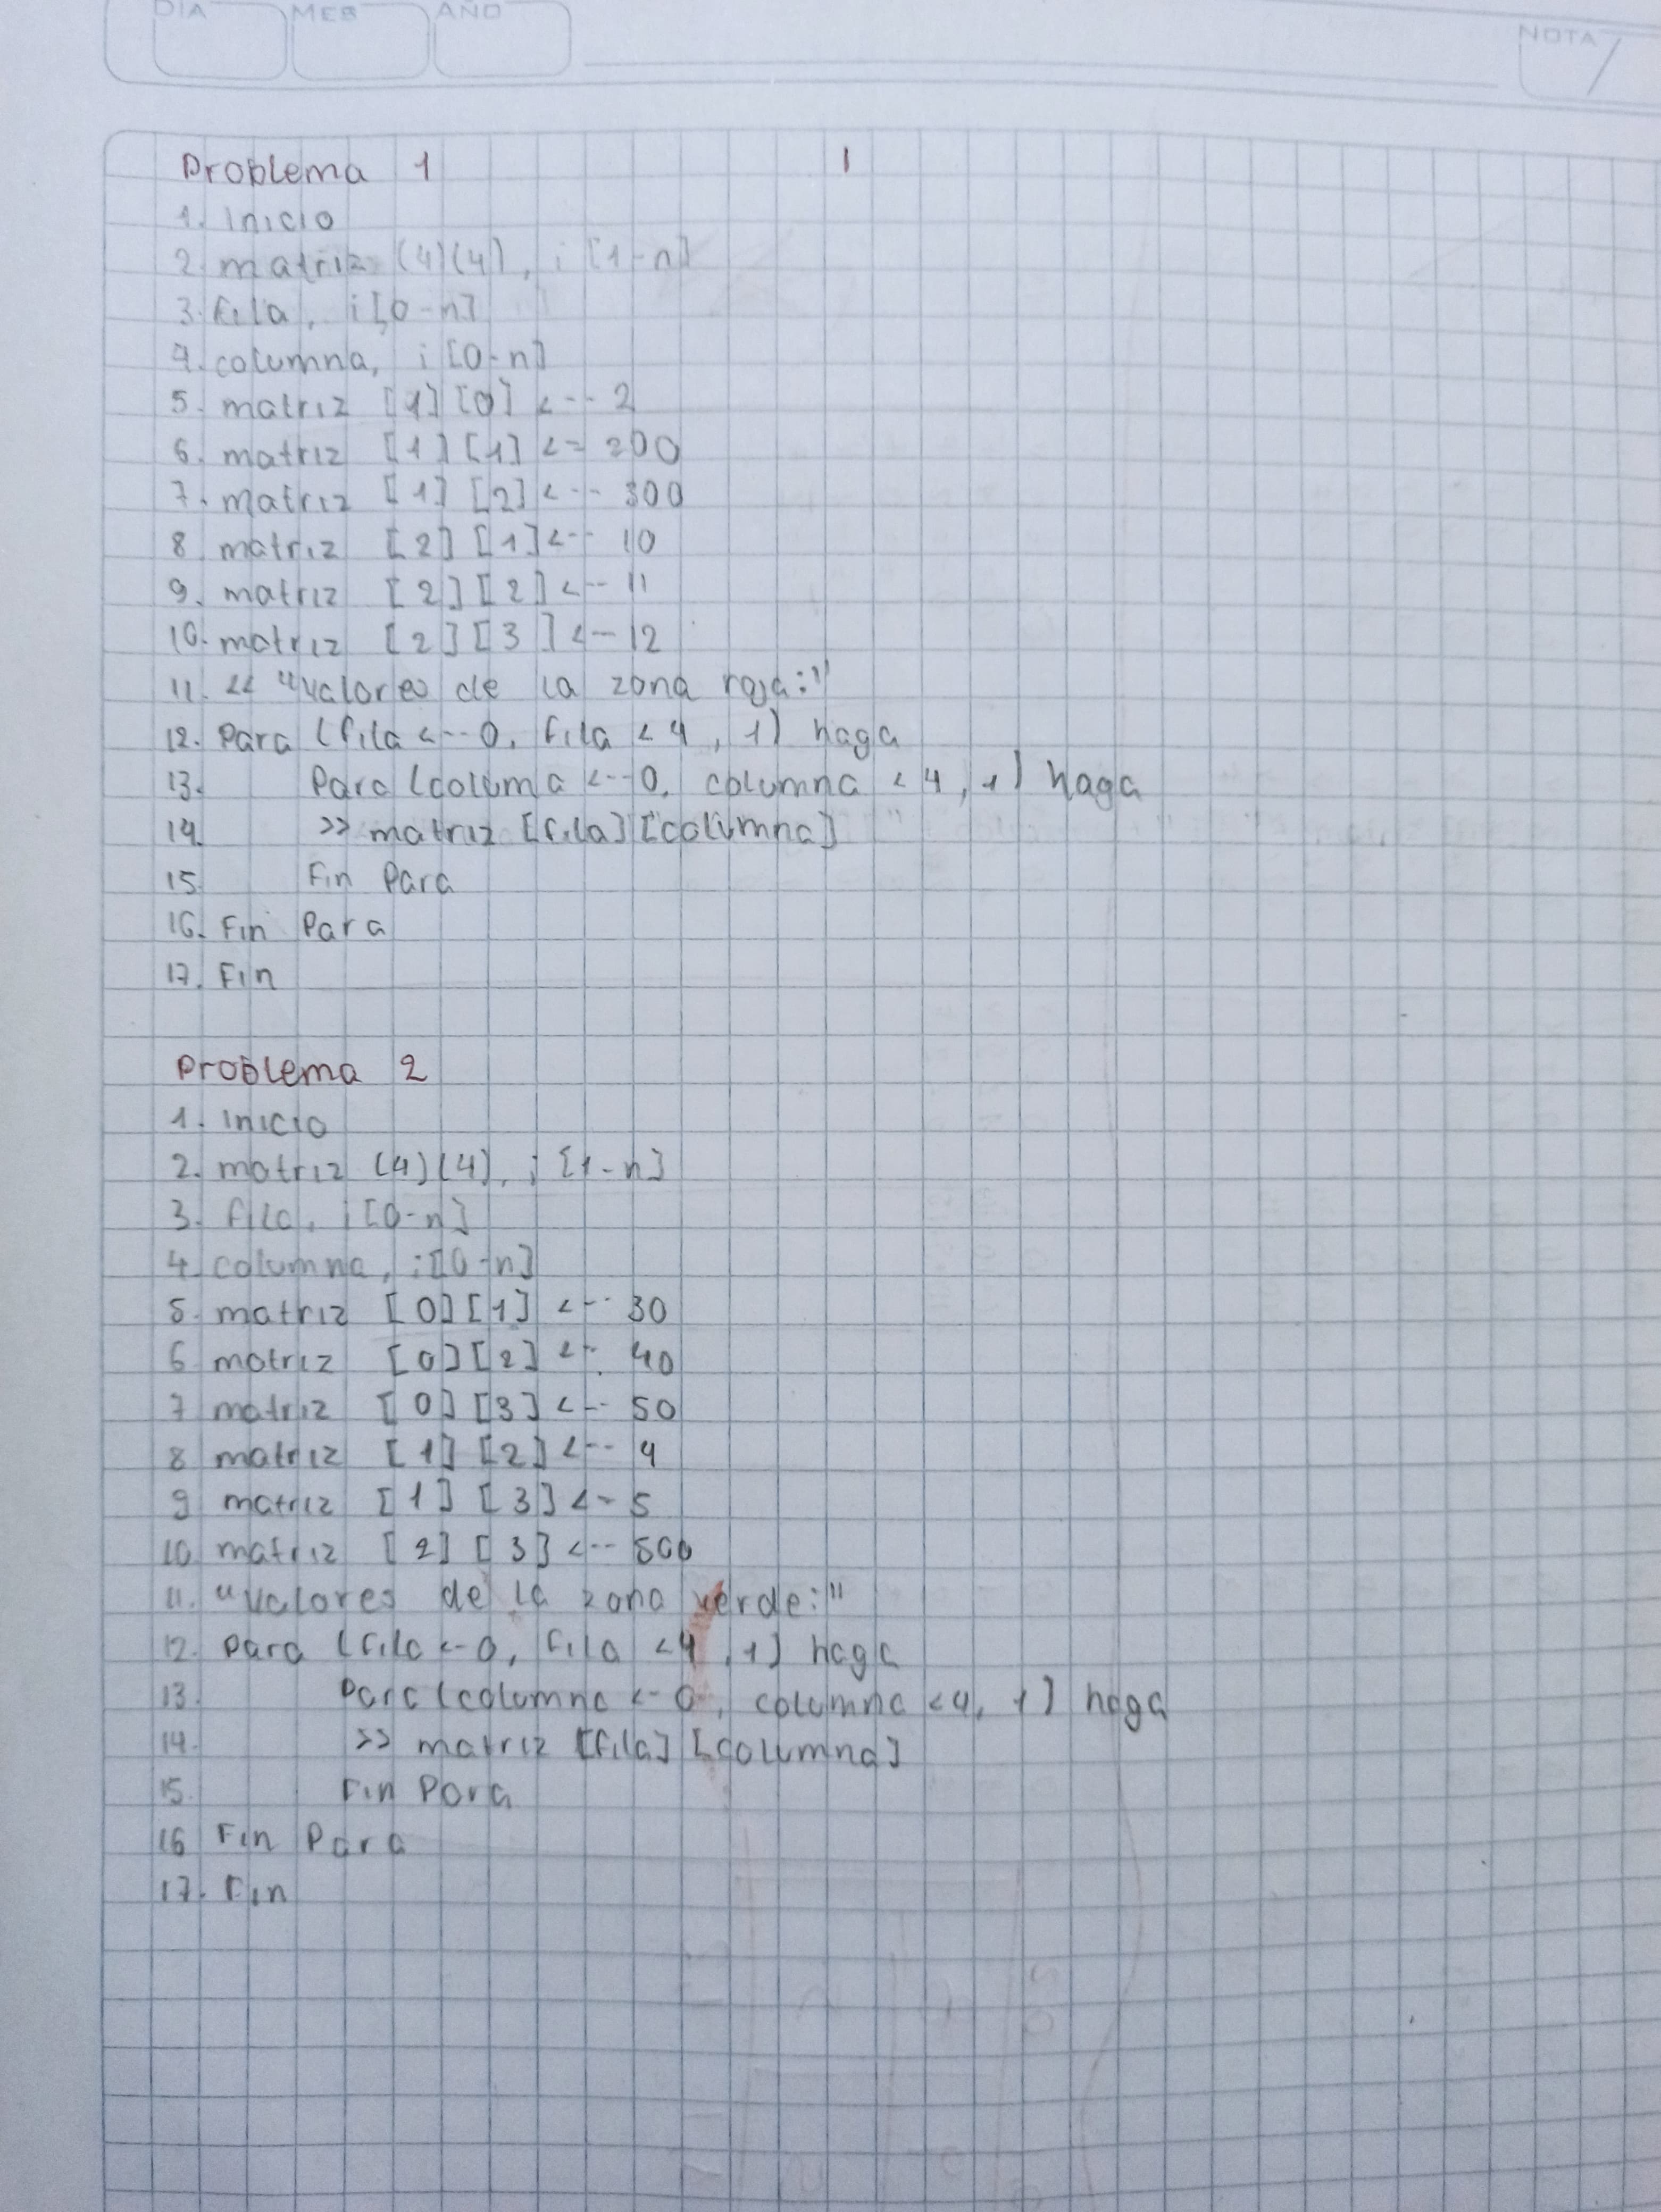 DIA MES AÑO
NOTA
Problema 1
1. Inicio
2. matriz (4)(4), i [1-n]
3. fila, i[0-n]
4. columna, i [0-n]
5. matriz [1][0] <-- 2
6. matriz [1][1] <- 200
7. matriz [1][2] <-- 300
8 matriz [2][1] <-- 10
9. matriz [2][2] <-- 11
10. matriz [2][3] <-- 12
11. << "valores de la zona roja:"
12. Para (fila <-- 0, fila < 4, 1) haga
13. Para (columa <-- 0, columna < 4, 1) haga
14. >> matriz [fila][columna]
15 Fin Para
16. Fin Para
17. Fin
Problema 2
1. Inicio
2. matriz (4)(4), i [1-n]
3. fila, i[0-n]
4. columna, i[0-n]
5. matriz [0][1] <-- 30
6 matriz [0][2] <-- 40
7 matriz [0][3] <-- 50
8 matriz [1][2] <-- 4
9 matriz [1][3] <- 5
10 matriz [2][3] <-- 500
11. "valores de la zona verde:"
12. Para (fila <- 0, fila < 4, 1) haga
13. Para (columna <- 0, columna < 4, 1) haga
14. >> matriz [fila][columna]
15. Fin Para
16 Fin Para
17. Fin